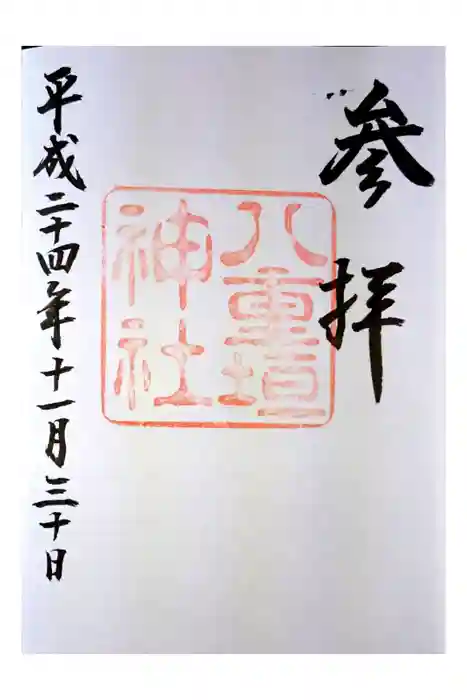 參拝
八重垣
神社
平成二十四年十一月三十日